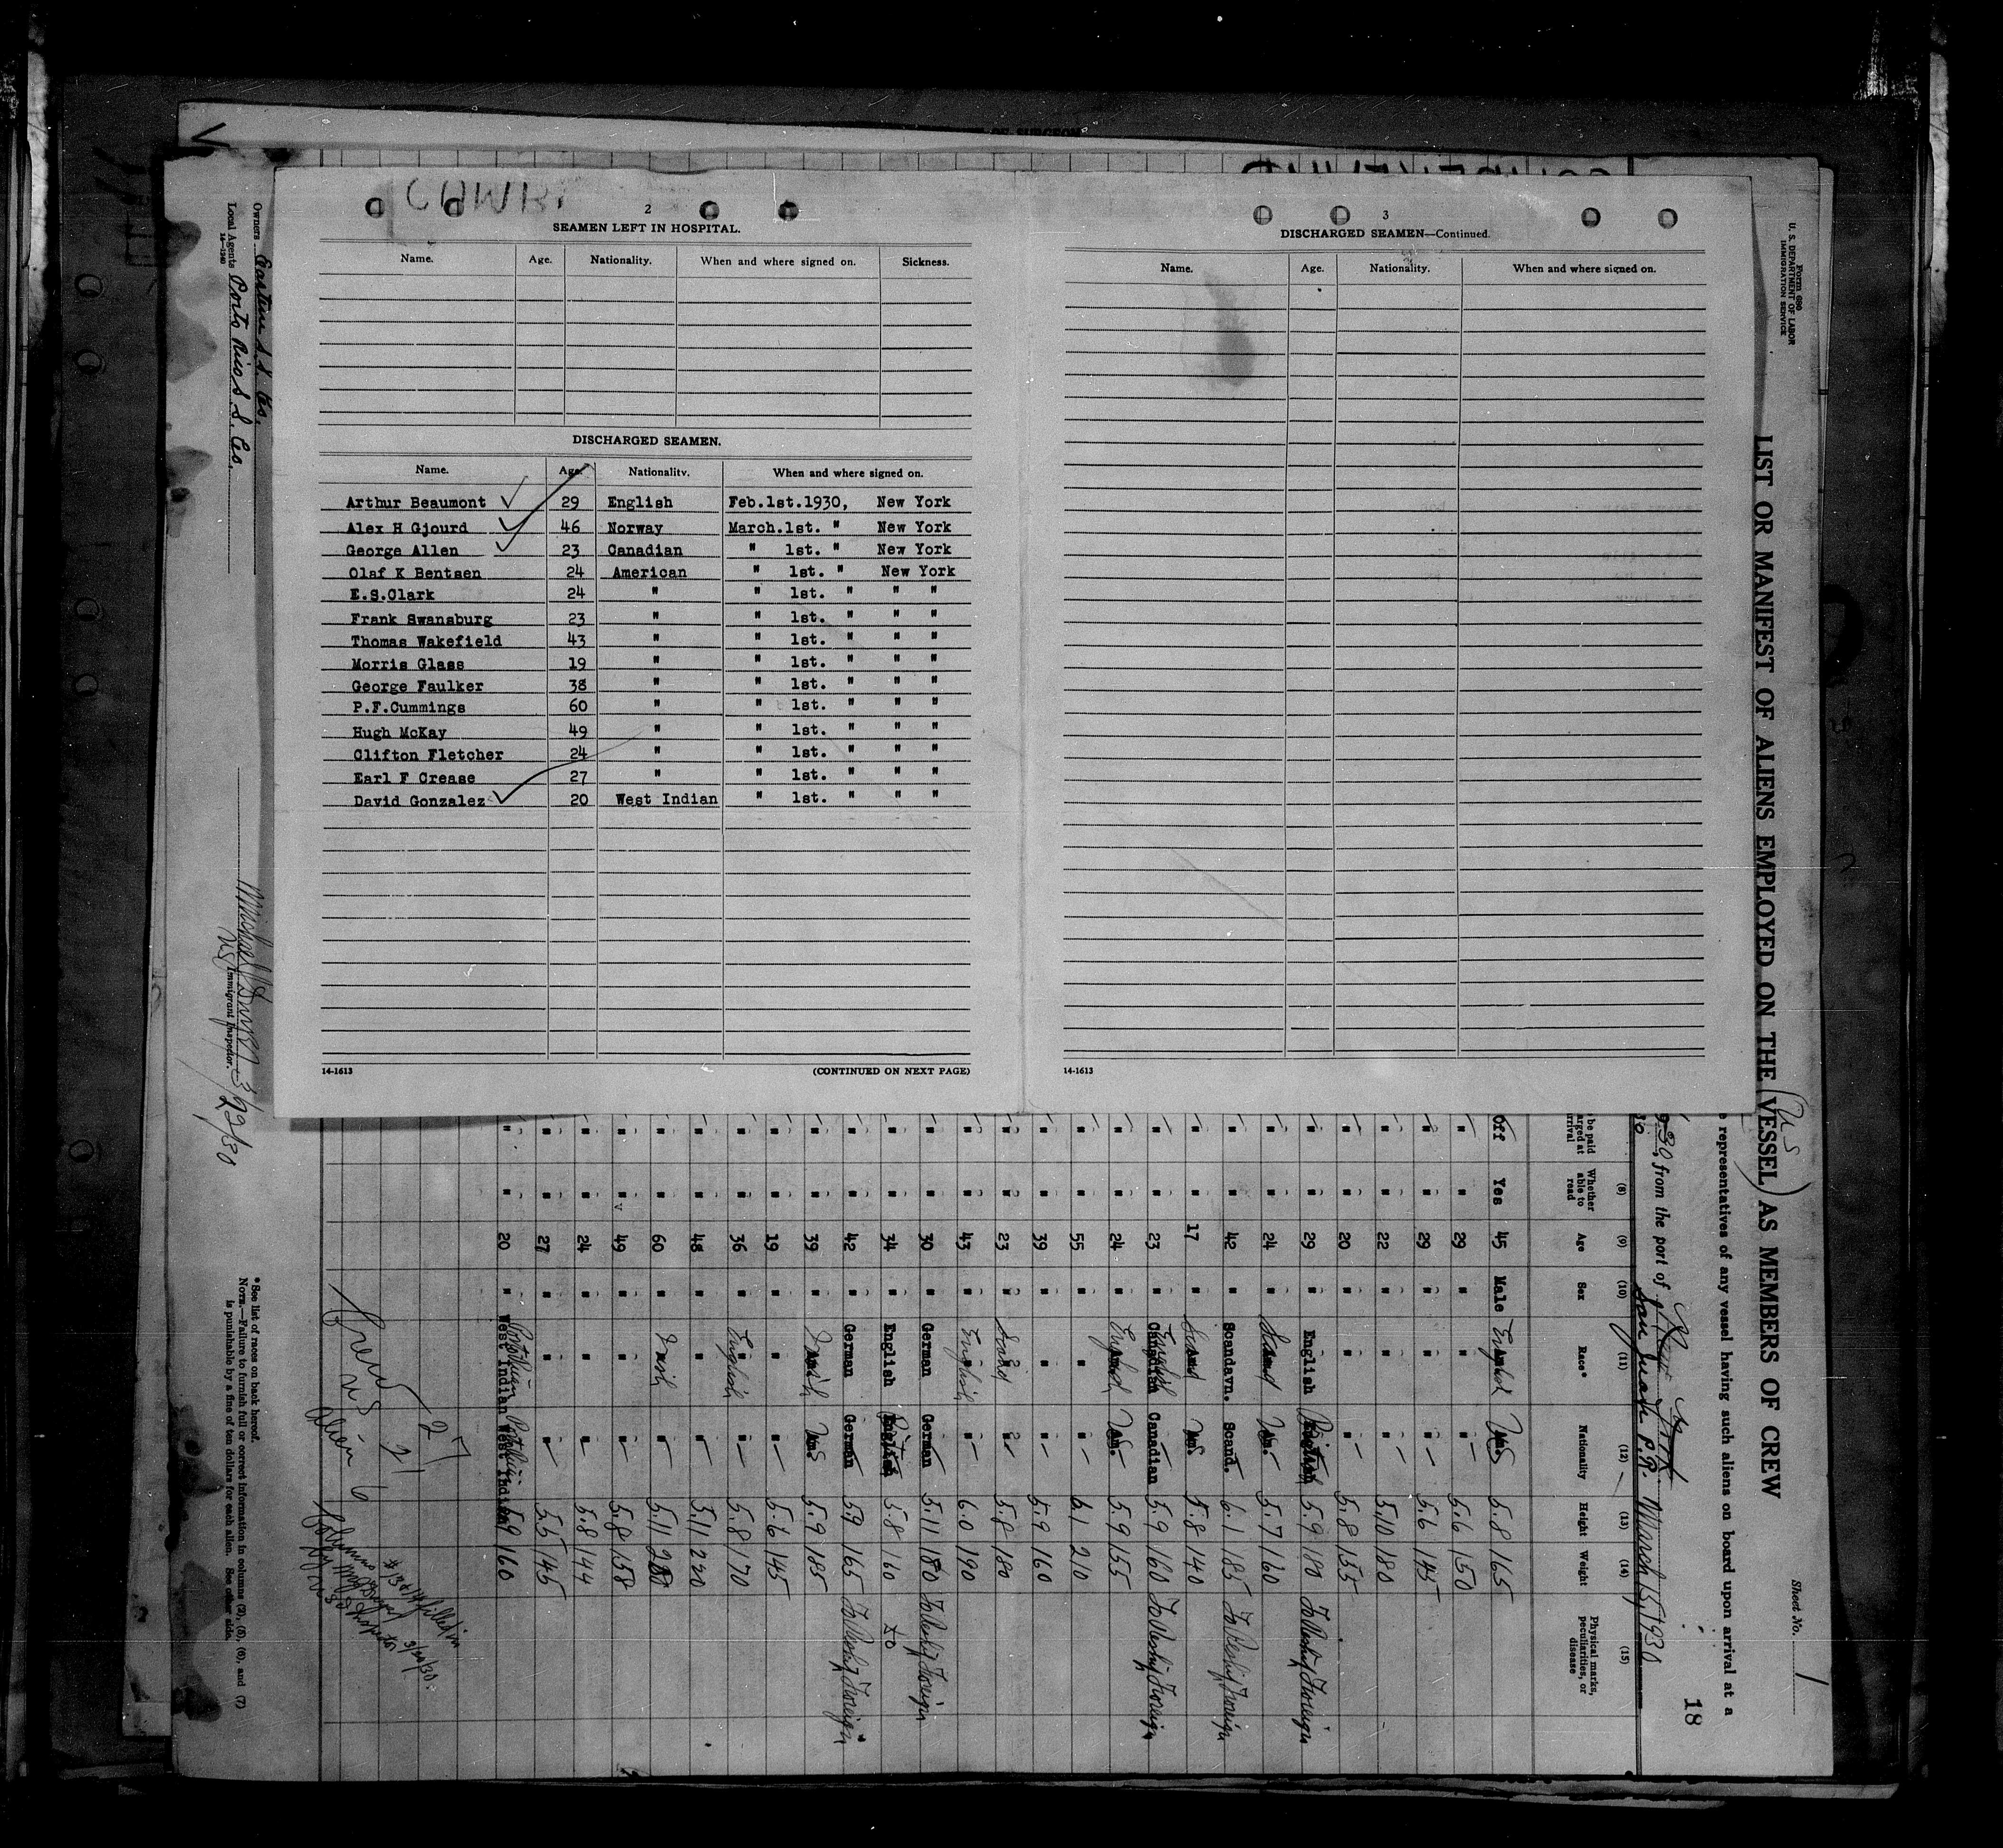 2
SEAMEN LEFT IN HOSPITAL.
Name. Age. Nationality. When and where signed on. Sickness.
DISCHARGED SEAMEN.
Name. Age. Nationality. When and where signed on.
Arthur Beaumont 29 English Feb.1st.1930, New York
Alex H Gjourd 46 Norway March.1st. " New York
George Allen 23 Canadian " 1st. " New York
Olaf K Bentsen 24 American " 1st. " New York
E.S.Clark 24 " " 1st. " " "
Frank Swansburg 23 " " 1st. " " "
Thomas Wakefield 43 " " 1st. " " "
Morris Glass 19 " " 1st. " " "
George Faulker 38 " " 1st. " " "
P.F.Cummings 60 " " 1st. " " "
Hugh McKay 49 " " 1st. " " "
Clifton Fletcher 24 " " 1st. " " "
Earl F Crease 27 " " 1st. " " "
David Gonzalez 20 West Indian " 1st. " " "
14-1613 (CONTINUED ON NEXT PAGE)
3
DISCHARGED SEAMEN—Continued.
Name. Age. Nationality. When and where signed on.
14-1613
Form 680
U. S. DEPARTMENT OF LABOR
IMMIGRATION SERVICE
LIST OR MANIFEST OF ALIENS EMPLOYED ON THE VESSEL AS MEMBERS OF CREW
Sheet No. 1
representatives of any vessel having such aliens on board upon arrival at a
18
from the port of San Juan P.R. March 15, 1930
(8) (9) (10) (11) (12) (13) (14) (15)
Whether able to read Age Sex Race* Nationality Height Weight Physical marks, peculiarities, or disease
Off Yes 45 Male English US 5.8 165
" " 29 " " " 5.6 150
" " 29 " " " 5.6 145
" " 22 " " " 5.10 180
" " 20 " " " 5.8 135
" " 29 " English British 5.9 180 To Reship Foreign
" " 24 " Scand 5.7 160
" " 42 " Scandavn. Scand. 6.1 185 To Reship Foreign
" " 17 " Scand 5.8 140
" " 23 " English Canadian 5.9 160 To Reship Foreign
" " 24 " English 5.9 155
" " 55 " " " 6.1 210
" " 39 " " " 5.9 160
" " 23 " Scand " 5.8 180
" " 43 " English " 6.0 190
" " 30 " German German 5.11 180 To Reship Foreign
" " 34 " English British 5.8 160
" " 42 " German German 5.9 165 To Reship Foreign
" " 39 " 5.9 185
" " 19 " " " 5.6 145
" " 36 " English " 5.8 170
" " 48 " " " 5.11 220
" " 60 " Irish " 5.11
" " 49 " " " 5.8 158
" " 24 " " " 5.8 144
" " 27 " " " 5.5 145
" " 20 " West Indian West Indian 5.9 160
Crew 27
US 21
Alien 6
3/20/30
*See list of races on back hereof.
NOTE.—Failure to furnish full or correct information in columns (2), (5), (6), and (7)
is punishable by a fine of ten dollars for each alien. See other side.
Owners Eastern S.S. Co.
Local Agents Porto Rico S.S. Co.
14—1240
Immigrant Inspector.